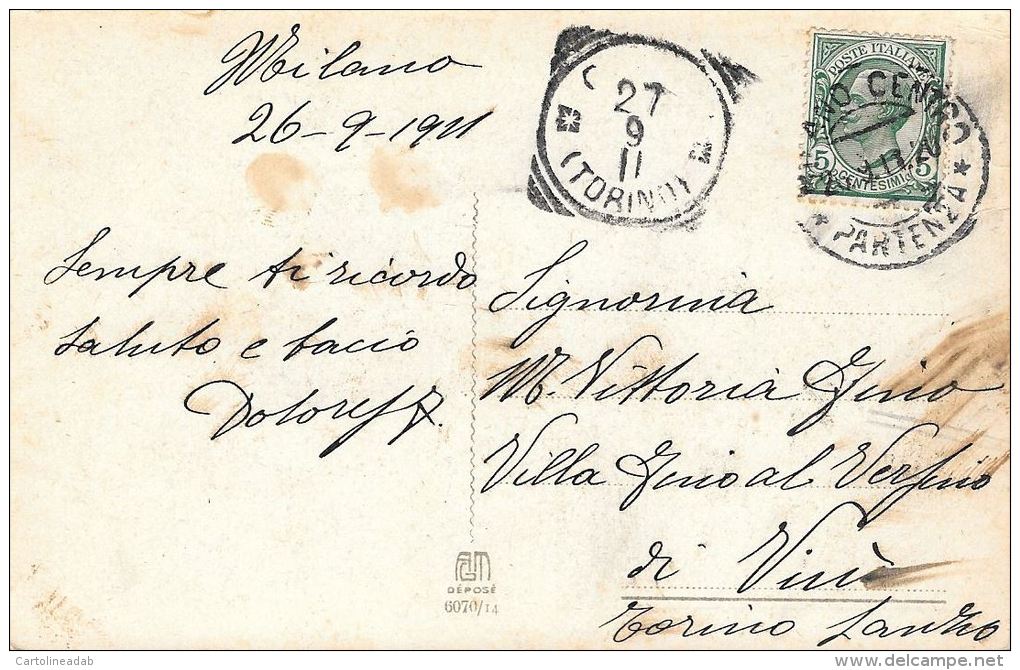 Milano
26-9-1911
27
9
11
(TORINO)
POSTE ITALIANE
5 CENTESIMI 5
MILANO CENTRO
* PARTENZA *
Sempre ti ricordo
saluto e bacio
Signorina
M. Vittoria Gino
Villa Gino al Versino
di Viù
Torino Lanzo
DÉPOSÉ
6070/14
© Cartolineadab
delcampe.net